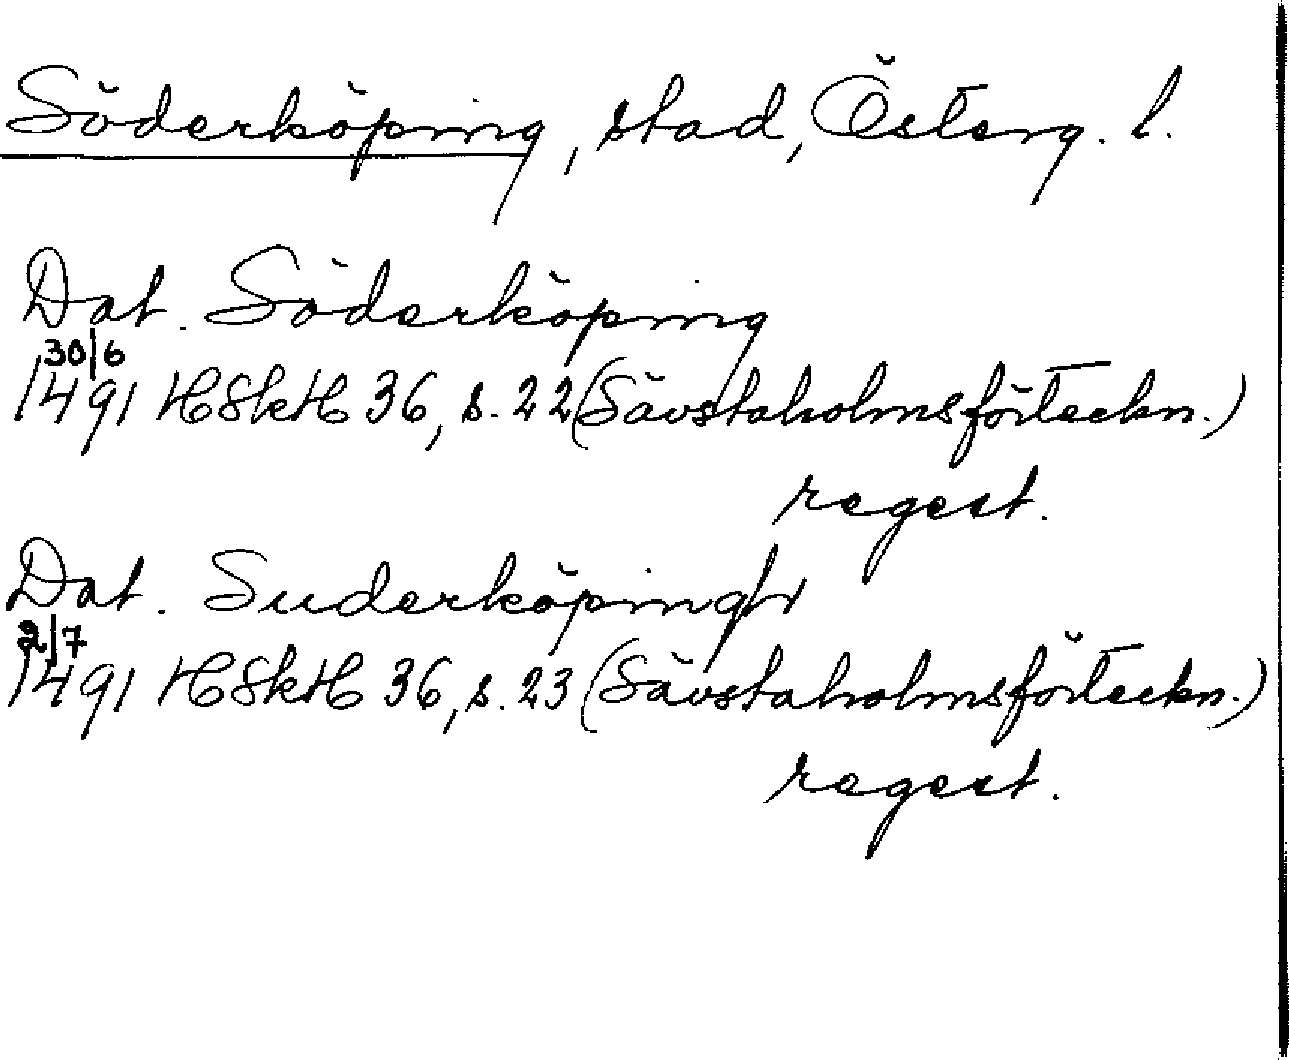 Söderköping, stad, Österg. l.
Dat. Söderköping
30/6
1491 HSkH 36, s. 22 (Sävstaholmsförteckn.)
regest.
Dat. Suderköping
2/7
1491 HSkH 36, s. 23 (Sävstaholmsförteckn.)
regest.